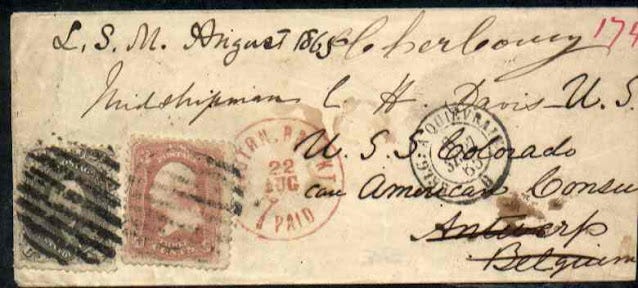 L. S. M. August 1865 Cherbourg 174
Midshipman C. H. Davis U. S.
U. S. S. Colorado
care American Consu
Antwerp
Belgium
22
AUG
PAID
QUIEVRAIN